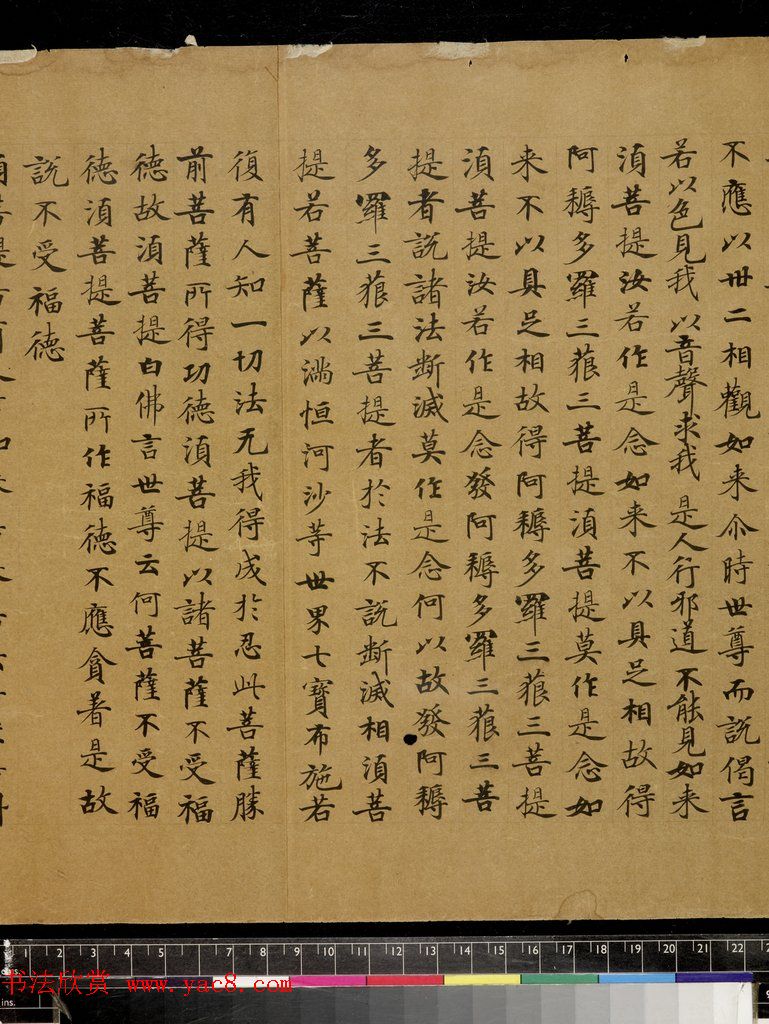 不應以卅二相觀如来尒時世尊而說偈言
若以色見我以音聲求我是人行邪道不能見如来
湏菩提汝若作是念如来不以具足相故得
阿耨多羅三藐三菩提湏菩提莫作是念如
来不以具足相故得阿耨多羅三藐三菩提
湏菩提汝若作是念發阿耨多羅三藐三菩
提者說諸法断滅莫作是念何以故發阿耨
多羅三藐三菩提者於法不說断滅相湏菩
提若菩薩以滿恒河沙等世界七寶布施若
復有人知一切法无我得成於忍此菩薩勝
前菩薩所得功德湏菩提以諸菩薩不受福
德故湏菩提白佛言世尊云何菩薩不受福
德湏菩提菩薩所作福德不應貪著是故
說不受福德
cms. 1 2 3 4 5 6 7 8 9 10 11 12 13 14 15 16 17 18 19 20 21 22
ins.
书法欣赏 www.yac8.com